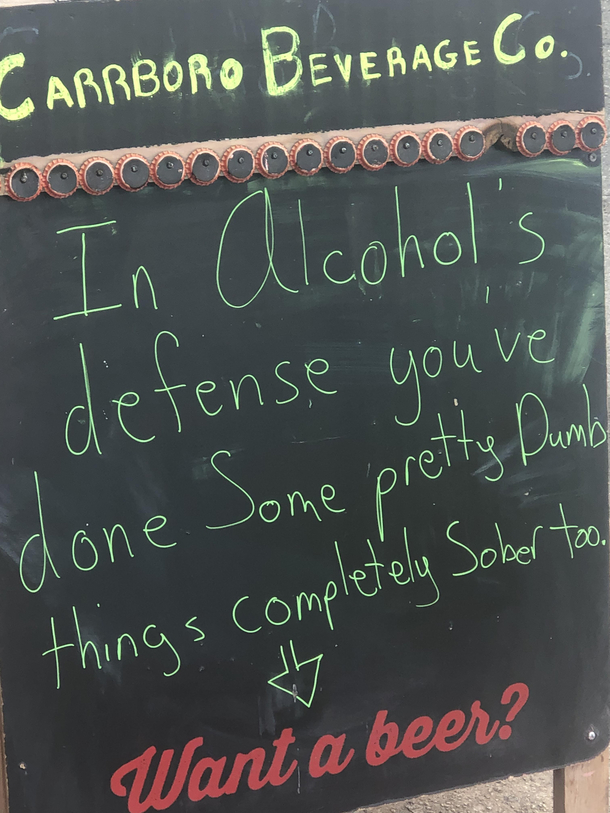 CARRBORO BEVERAGE CO.
In Alcohol's
defense you've
done Some pretty Dumb
things completely Sober too.
Want a beer?